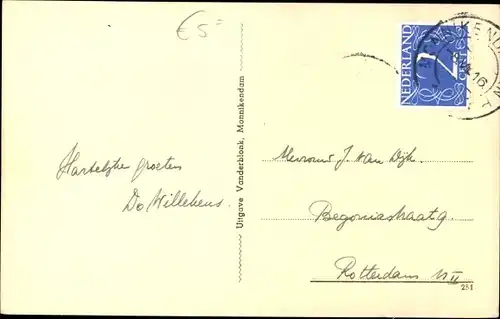 €5=
NEDERLAND
2
CENT
Hartelijke groeten
Do Willekens.
Uitgave Vanderblonk, Monnikendam
Mevrouw J. van Dijk.
Begoniastraat 9
Rotterdam N II
251